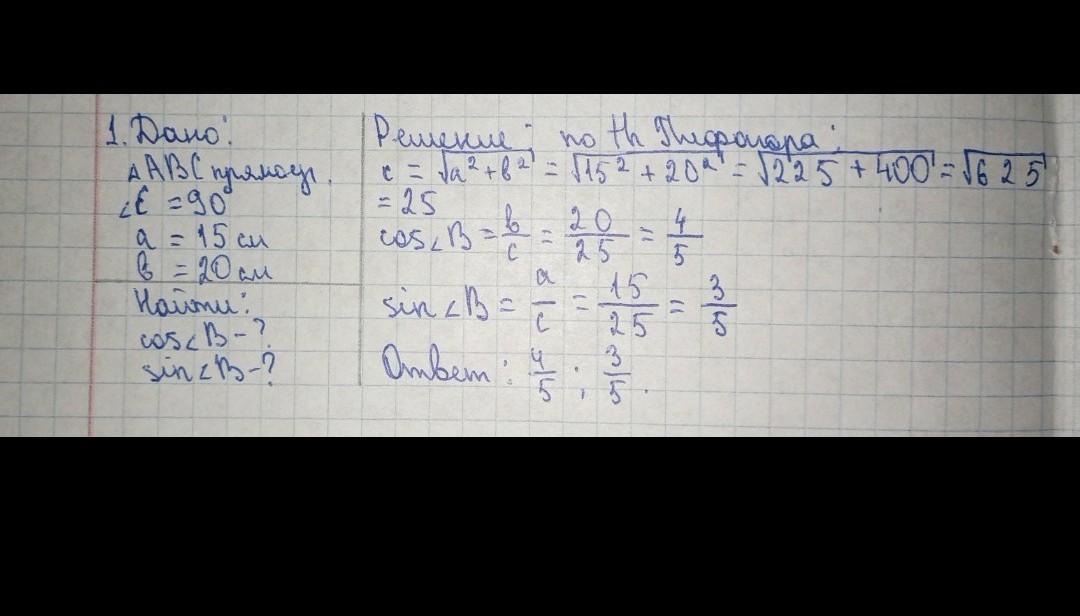 1. Дано:
△ABC прямоуг.
∠C = 90
a = 15 см
b = 20 см
Найти:
cos∠B - ?
sin∠B - ?
Решение: по th Пифагора:
c = √a² + b² = √15² + 20² = √225 + 400 = √625
= 25
cos∠B = b/c = 20/25 = 4/5
sin∠B = a/c = 15/25 = 3/5
Ответ: 4/5 ; 3/5.